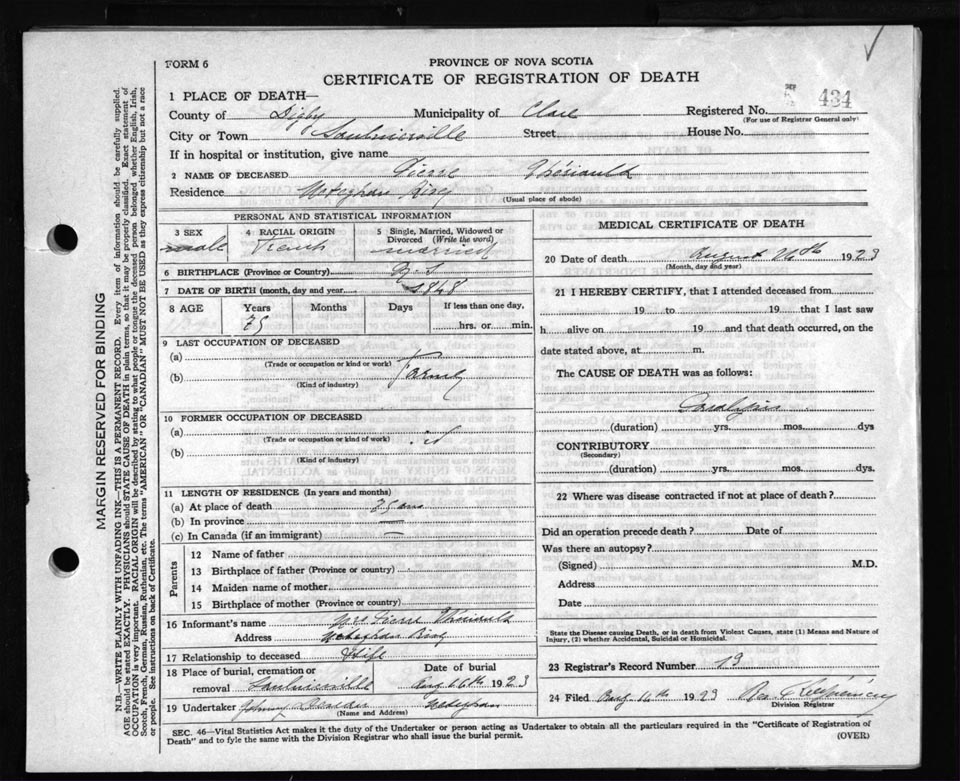 FORM 6
PROVINCE OF NOVA SCOTIA
CERTIFICATE OF REGISTRATION OF DEATH
1 PLACE OF DEATH—
County of Digby Municipality of Clare Registered No. 434
(For use of Registrar General only)
City or Town Saulnierville Street House No.
If in hospital or institution, give name
2 NAME OF DECEASED Pierre Thériault
Residence Meteghan River
(Usual place of abode)
PERSONAL AND STATISTICAL INFORMATION
3 SEX 4 RACIAL ORIGIN 5 Single, Married, Widowed or
Divorced (Write the word)
male French married
6 BIRTHPLACE (Province or Country)
7 DATE OF BIRTH (month, day and year) 1848
8 AGE Years Months Days If less than one day,
75 hrs. or min.
9 LAST OCCUPATION OF DECEASED
(a)
(Trade or occupation or kind or work)
(b)
(Kind of industry)
10 FORMER OCCUPATION OF DECEASED
(a)
(Trade or occupation or kind of work)
(b)
(Kind of industry)
11 LENGTH OF RESIDENCE (In years and months)
(a) At place of death 75 ans
(b) In province —
(c) In Canada (if an immigrant) —
Parents
12 Name of father
13 Birthplace of father (Province or country)
14 Maiden name of mother
15 Birthplace of mother (Province or country)
16 Informant's name Mrs Pierre Thériault
Address Meteghan River
17 Relationship to deceased Wife
18 Place of burial, cremation or Date of burial
removal Saulnierville Aug 1923
19 Undertaker Johnny Meteghan
(Name and Address)
MEDICAL CERTIFICATE OF DEATH
20 Date of death August 1923
(Month, day and year)
21 I HEREBY CERTIFY, that I attended deceased from
19 to 19 that I last saw
h alive on 19 and that death occurred, on the
date stated above, at m.
The CAUSE OF DEATH was as follows:
Paralysis
(duration) yrs. mos. dys
CONTRIBUTORY
(Secondary)
(duration) yrs. mos. dys.
22 Where was disease contracted if not at place of death?
Did an operation precede death? Date of
Was there an autopsy?
(Signed) M.D.
Address
Date
State the Disease causing Death, or in death from Violent Causes, state (1) Means and Nature of
Injury, (2) whether Accidental, Suicidal or Homicidal.
23 Registrar's Record Number 13
24 Filed Aug 1923
Division Registrar
SEC. 46—Vital Statistics Act makes it the duty of the Undertaker or person acting as Undertaker to obtain all the particulars required in the "Certificate of Registration of
Death" and to fyle the same with the Division Registrar who shall issue the burial permit. (OVER)
MARGIN RESERVED FOR BINDING
N.B.—WRITE PLAINLY WITH UNFADING INK—THIS IS A PERMANENT RECORD. Every item of information should be carefully supplied.
AGE should be stated EXACTLY. PHYSICIANS should STATE CAUSE OF DEATH in plain terms, so that it may be properly classified. Exact statement of
OCCUPATION is very important. RACIAL ORIGIN will be described by stating to what people or tongue the deceased person belonged whether English, Irish,
Scotch, French, German, Russian, Ruthenian, etc. The terms "AMERICAN" OR "CANADIAN" MUST NOT BE USED as they express citizenship but not a race
or people. See instructions on back of Certificate.